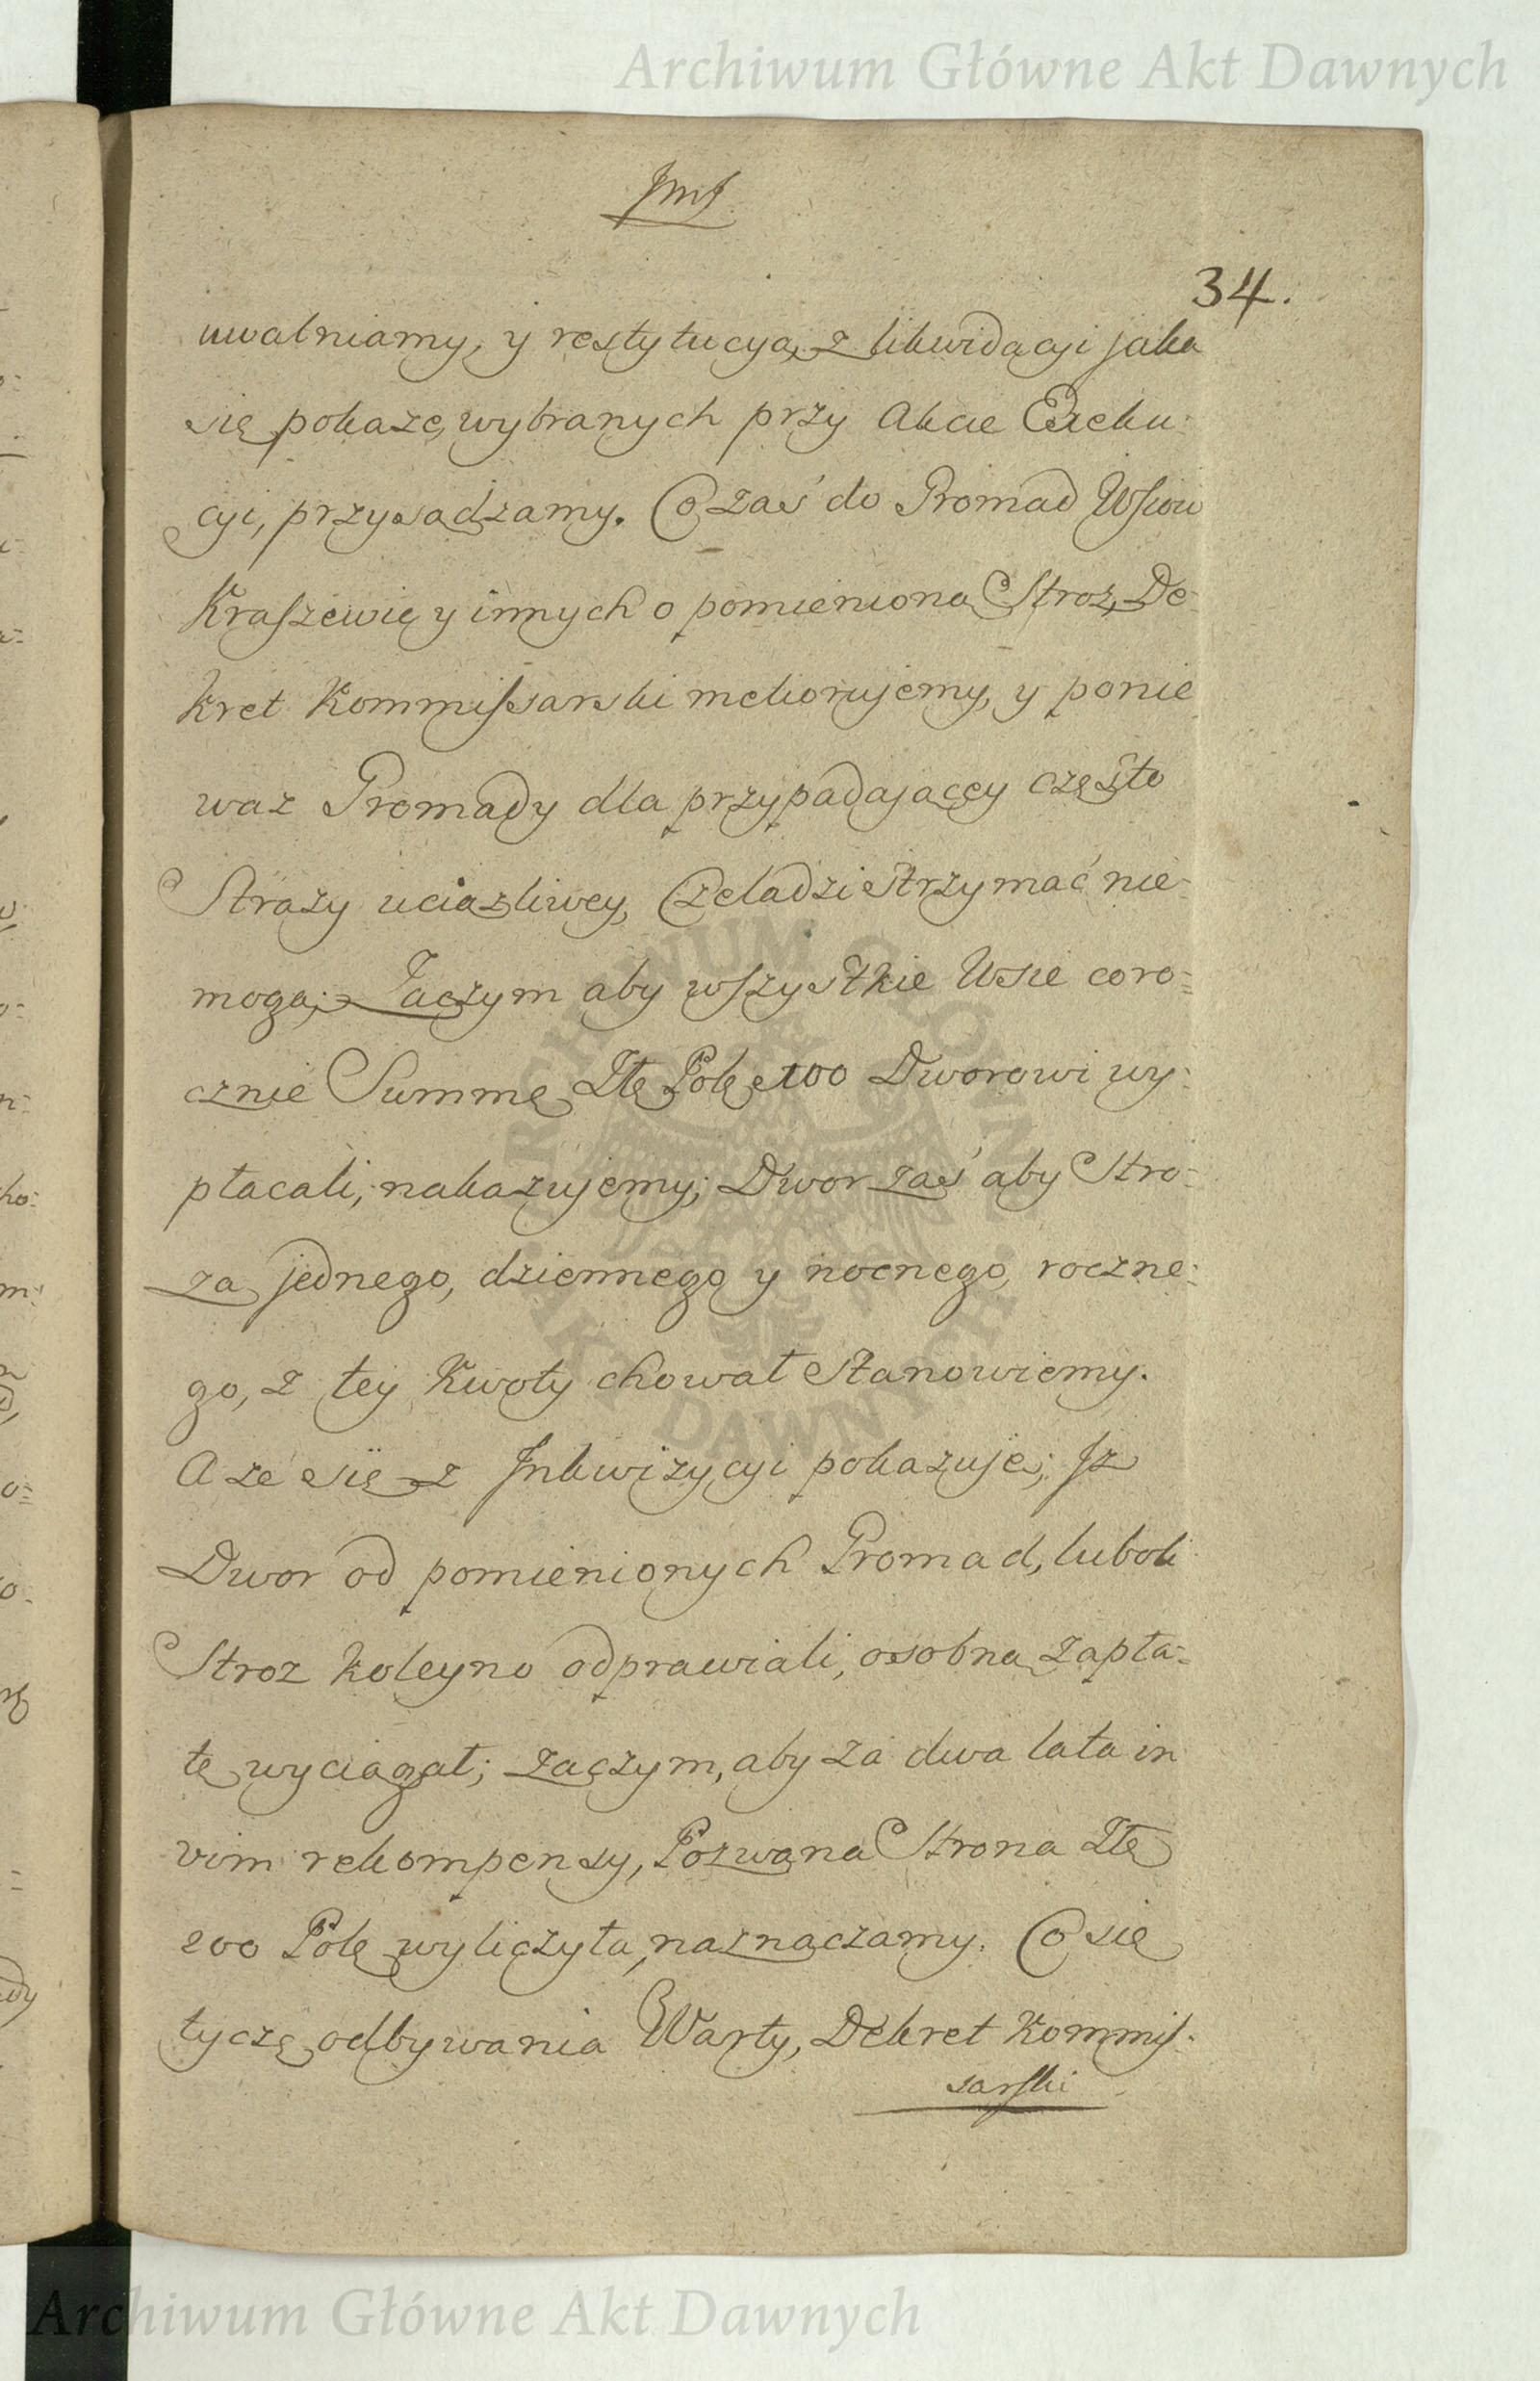 Archiwum Główne Akt Dawnych
JmJ.
34.
uwalniamy, y restytucyą z likwidacyi jaka
się pokaże, wybranych przy Akcie Exeku-
cyi, przysądzamy. Co zaś do Gromad Wsiow
Kraszewię y innych o pomienioną Stroż, De-
kret Kommissarski meliorujemy, y ponie
waz Gromady dla przypadaiącey często
Strazy uciązliwey, Czeladzi strzymać nie-
mogą; Zaczym aby wszystkie Wsie coro-
cznie Summę Złł Polł 100 Dworowi wy-
płacali, nakazujemy; Dwor zaś aby Stro-
za jednego, dziennego y nocnego, roczne-
go, z tey Kwoty chował Stanowiemy.
A ze się z Inkwizycyi pokazuje, Iz
Dwor od pomienionych Gromad, luboli
Stroz koleyno odprawiali, osobną zapła-
tę wyciągał; zaczym, aby za dwa lata in
vim rekompensy, Pozwana Strona Złł
200 Polł wyliczyła, naznaczamy. Co się
tycze odbywania Warty, Dekret Kommis-
sarski
ARCHIWUM GŁÓWNE AKT DAWNYCH
Archiwum Główne Akt Dawnych